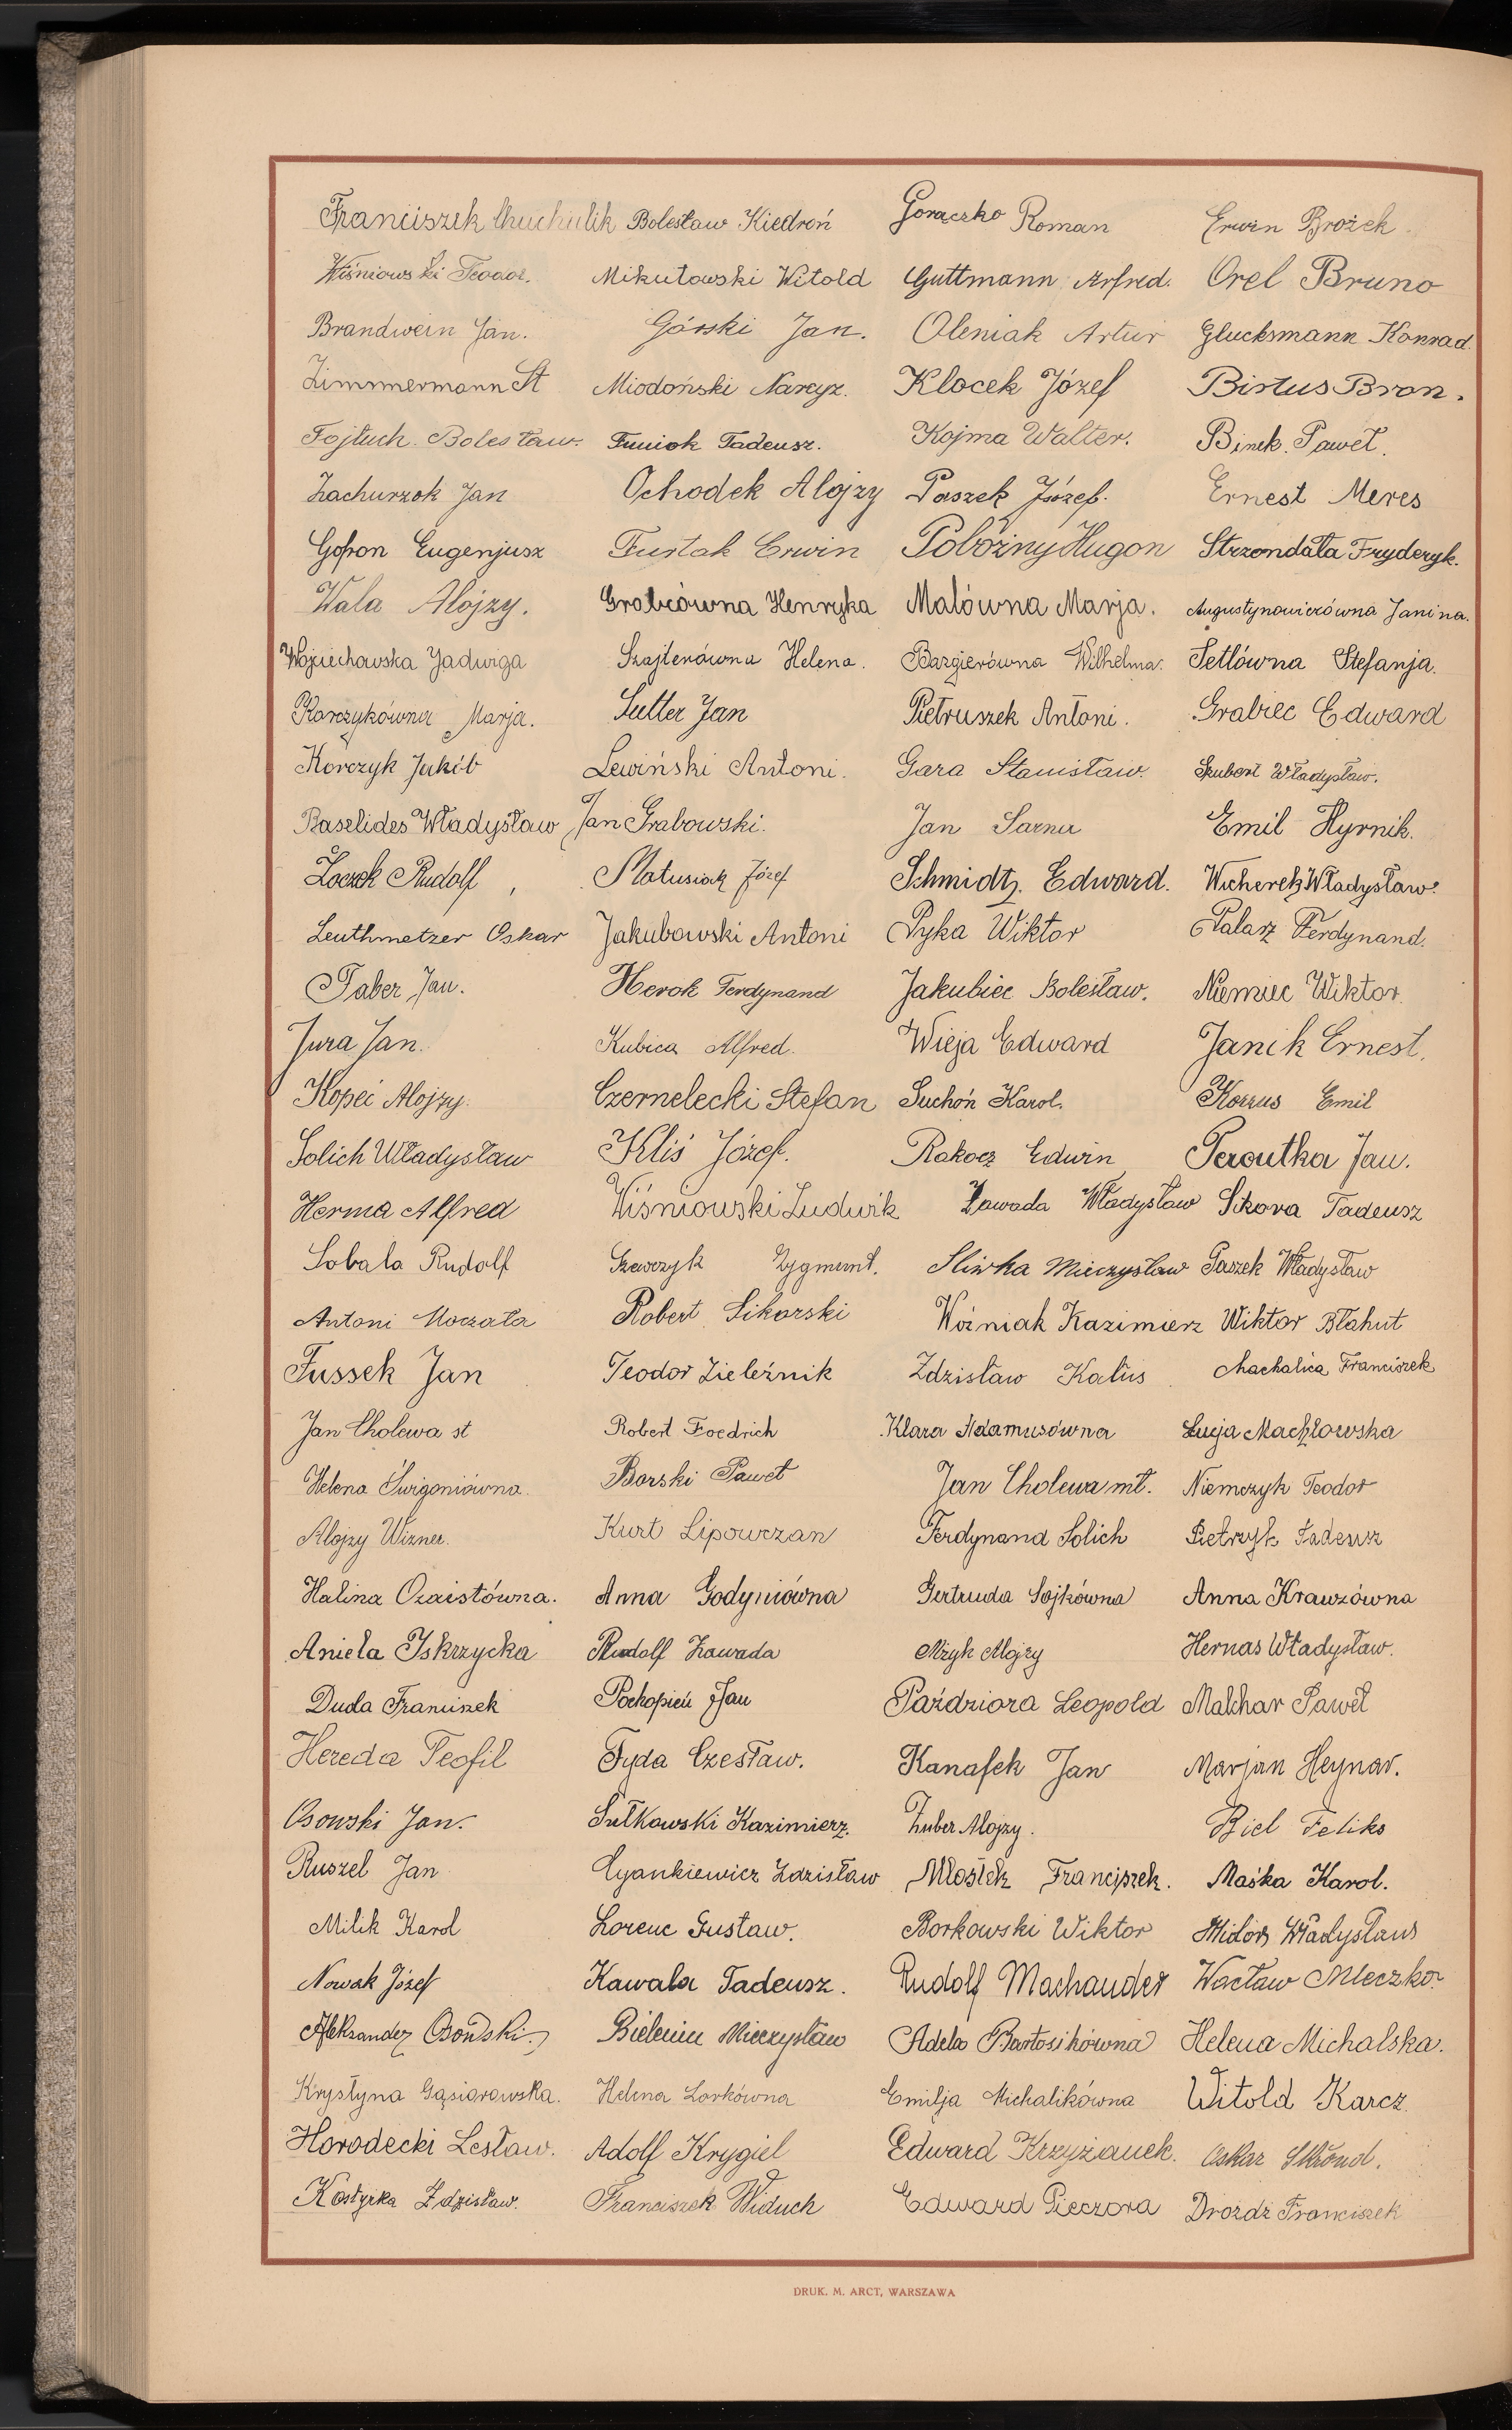 Franciszek Chuchulik Bolesław Kiedroń Gorączko Roman Erwin Brożek
Wiśniowski Teodor. Mikułowski Witold Guttmann Arfred. Orel Bruno
Brandwein Jan. Górski Jan. Oleniak Artur Glucksmann Konrad.
Zimmmermann St Miodoński Narcyz. Klocek Józef Birtus Bron.
Fojtuch Bolesław. Funiok Tadeusz. Kojma Walter. Binek Paweł.
Zachurzok Jan Ochodek Alojzy Paszek Józef. Ernest Meres
Gofron Eugenjusz Furtak Erwin Pobożny Hugon Strzondała Fryderyk.
Wala Alojzy. Grabcówna Henryka Malówna Marja. Augustynowiczówna Janina.
Wojciechowska Jadwiga Szajterówna Helena. Bazgierówna Wilhelma. Setlówna Stefanja.
Korczykówna Marja. Sutter Jan Pietruszek Antoni. Grabiec Edward
Korczyk Jakób Lewiński Antoni. Gara Stanisław. Szubert Władysław.
Baselides Władysław Jan Grabowski. Jan Sarna Emil Hyrnik.
Loczek Rudolf Matusiak Józef Schmidtz. Edward. Wicherek Władysław.
Leuthmetzer Oskar Jakubowski Antoni Pyka Wiktor Palarz Ferdynand.
Faber Jan. Herok Ferdynand Jakubiec Bolesław. Niemiec Wiktor.
Jura Jan. Kubica Alfred. Wieja Edward Janik Ernest.
Kopeć Alojzy. Czernelecki Stefan Suchoń Karol. Korzus Emil
Solich Władysław Kliś Józef. Rakocz Edwin Peroutka Jan.
Herma Alfred Wiśniowski Ludwik Zawada Władysław Sikora Tadeusz
Sobala Rudolf Szewczyk Zygmunt. Sliwka Mieczysław Paszek Władysław
Antoni Moczała Robert Sikorski Woźniak Kazimierz Wiktor Błahut
Fussek Jan Teodor Zieleźnik Zdzisław Kaluś Machalica Franciszek
Jan Cholewa st Robert Foedrich Klara Adamusówna Łucja Machłowska
Helena Świgoniówna. Borski Paweł Jan Cholewa mł. Niemczyk Teodor
Alojzy Wizner. Kurt Lipowczan Ferdynand Solich Pietrzyk Tadeusz
Halina Czaistówna. Anna Godyniówna Gertruda Sojkówna Anna Krawzówna
Aniela Iskrzycka Rudolf Zawada Mżyk Alojzy Hernas Władysław.
Duda Franciszek Prokopień Jan Paździora Leopold Malchar Paweł
Hereda Teofil Fyda Czesław. Kanafek Jan Marjan Heynar.
Osowski Jan. Sułkowski Kazimierz. Zuber Alojzy. Biel Feliks
Ruszel Jan Cyankiewicz Zdzisław Młosiek Franciszek. Maśka Karol.
Milik Karol Lorenc Gustaw. Borkowski Wiktor Midor Władysław
Nowak Józef Kawala Tadeusz. Rudolf Machander Wacław Mleczko.
Aleksander Osowski. Bielenin Mieczysław Adela Bartosikówna Helena Michalska.
Krystyna Gąsiorowska. Helena Lorkówna Emilja Michalikówna Witold Karcz.
Horodecki Lesław. Adolf Krygiel Edward Krzyżanek. Oskar Skrond.
Kostyrka Zdzisław. Franciszek Widuch Edward Pieczora Drożdż Franciszek
DRUK. M. ARCT, WARSZAWA